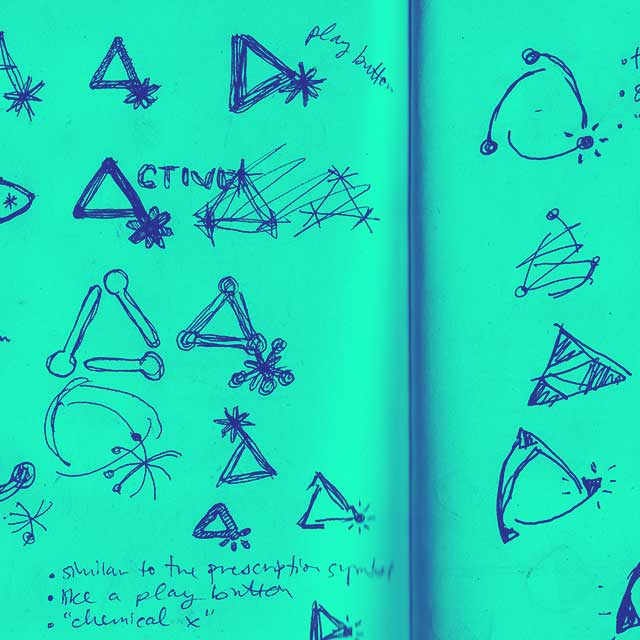 play button
CTIVE
• similar to the prescription symbol
• like a play button
• "chemical x"